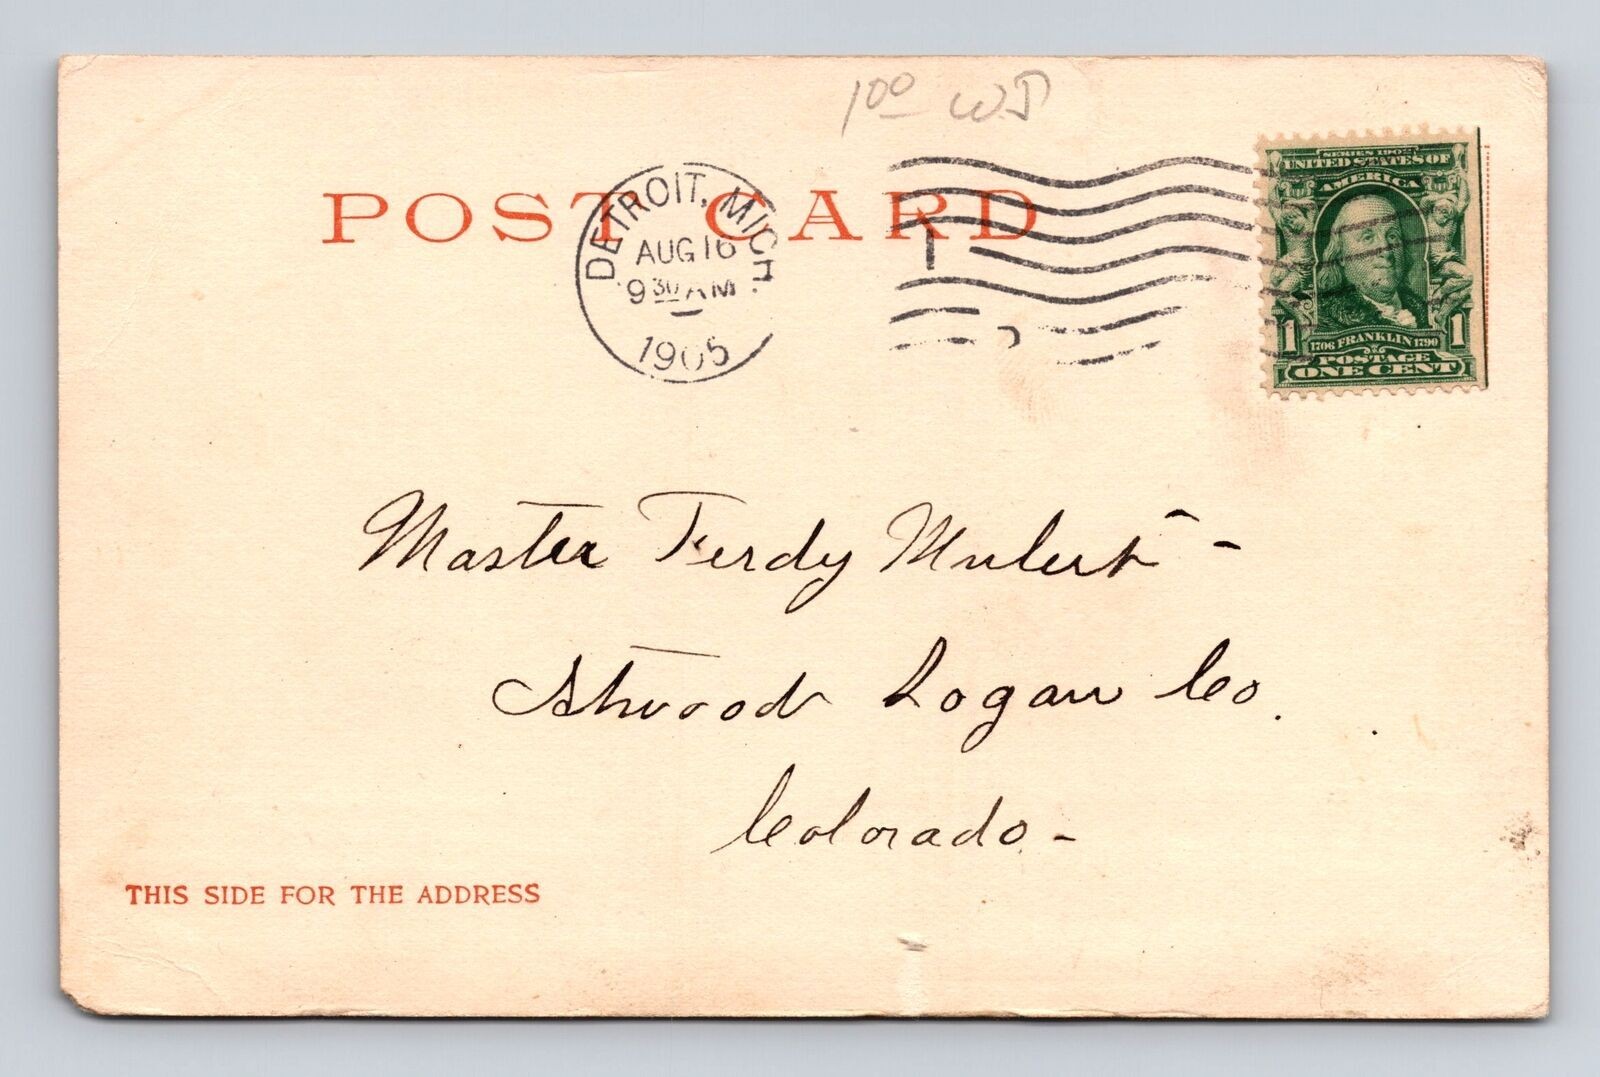 1.00 WJ
POST CARD
DETROIT, MICH.
AUG 16
9 30 AM
1905
SERIES 1902
UNITED STATES OF
AMERICA
1 1706 FRANKLIN 1790 1
POSTAGE
ONE CENT
Master Ferdy Mulert -
Atwood Logan Co.
Colorado -
THIS SIDE FOR THE ADDRESS